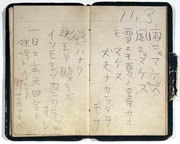 11.3
雨ニモマケズ
風ニモマケズ
雪ニモ夏ノ暑サニモ
マケヌ
丈夫ナカラダヲ
モチ
慾ハナク
決シテ瞋ラズ
イツモシヅカニワラッテ
ヰル
一日ニ玄米四合ト
味噌ト少シノ
野菜ヲタベ